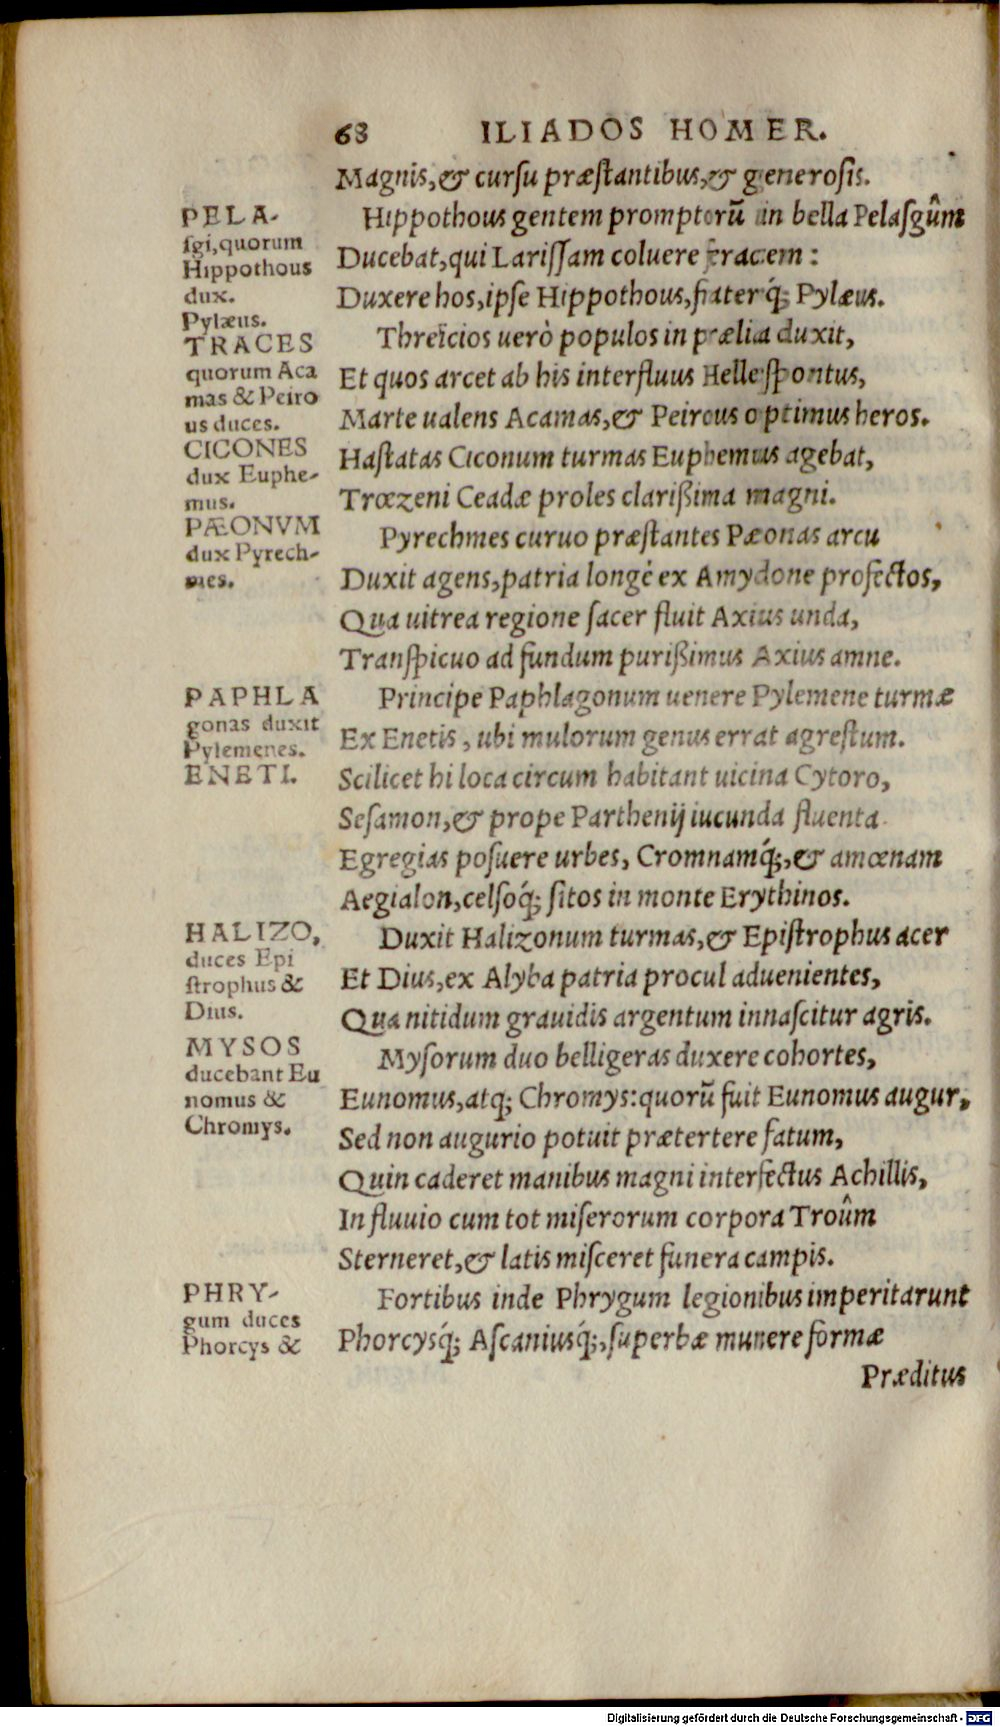 68 ILIADOS HOMER.
Magnis,& cursu præstantibus,& generosis.
Hippothous gentem promptorū in bella Pelasgûm
Ducebat,qui Larissam coluere feracem:
Duxere hos,ipse Hippothous,frater q́; Pylæus.
Threïcios uerò populos in prælia duxit,
Et quos arcet ab his interfluus Hellespontus,
Marte ualens Acamas,& Peirous optimus heros.
Hastatas Ciconum turmas Euphemus agebat,
Trœzeni Ceadæ proles clarißima magni.
Pyrechmes curuo præstantes Pæonas arcu
Duxit agens,patria longè ex Amydone profectos,
Qua uitrea regione sacer fluit Axius unda,
Transpicuo ad fundum purißimus Axius amne.
Principe Paphlagonum uenere Pylemene turmæ
Ex Enetis, ubi mulorum genus errat agrestum.
Scilicet hi loca circum habitant uicina Cytoro,
Sesamon,& prope Parthenij iucunda fluenta
Egregias posuere urbes, Cromnamq́;,& amœnam
Aegialon,celsoq́; sitos in monte Erythinos.
Duxit Halizonum turmas,& Epistrophus acer
Et Dius,ex Alyba patria procul aduenientes,
Qua nitidum grauidis argentum innascitur agris.
Mysorum duo belligeras duxere cohortes,
Eunomus,atq; Chromys:quorū fuit Eunomus augur,
Sed non augurio potuit prætertere fatum,
Quin caderet manibus magni interfectus Achillis,
In fluuio cum tot miserorum corpora Troûm
Sterneret,& latis misceret funera campis.
Fortibus inde Phrygum legionibus imperitarunt
Phorcysq́; Ascaniusq́;,superbæ munere formæ
Præditus
PELA-
sgi,quorum
Hippothous
dux.
Pylæus.
TRACES
quorum Aca
mas & Peiro
us duces.
CICONES
dux Euphe-
mus.
PÆONVM
dux Pyrech-
mes.
PAPHLA
gonas duxit
Pylemenes.
ENETI.
HALIZO,
duces Epi
strophus &
Dius.
MYSOS
ducebant Eu
nomus &
Chromys.
PHRY-
gum duces
Phorcys &
Digitalisierung gefördert durch die Deutsche Forschungsgemeinschaft - DFG